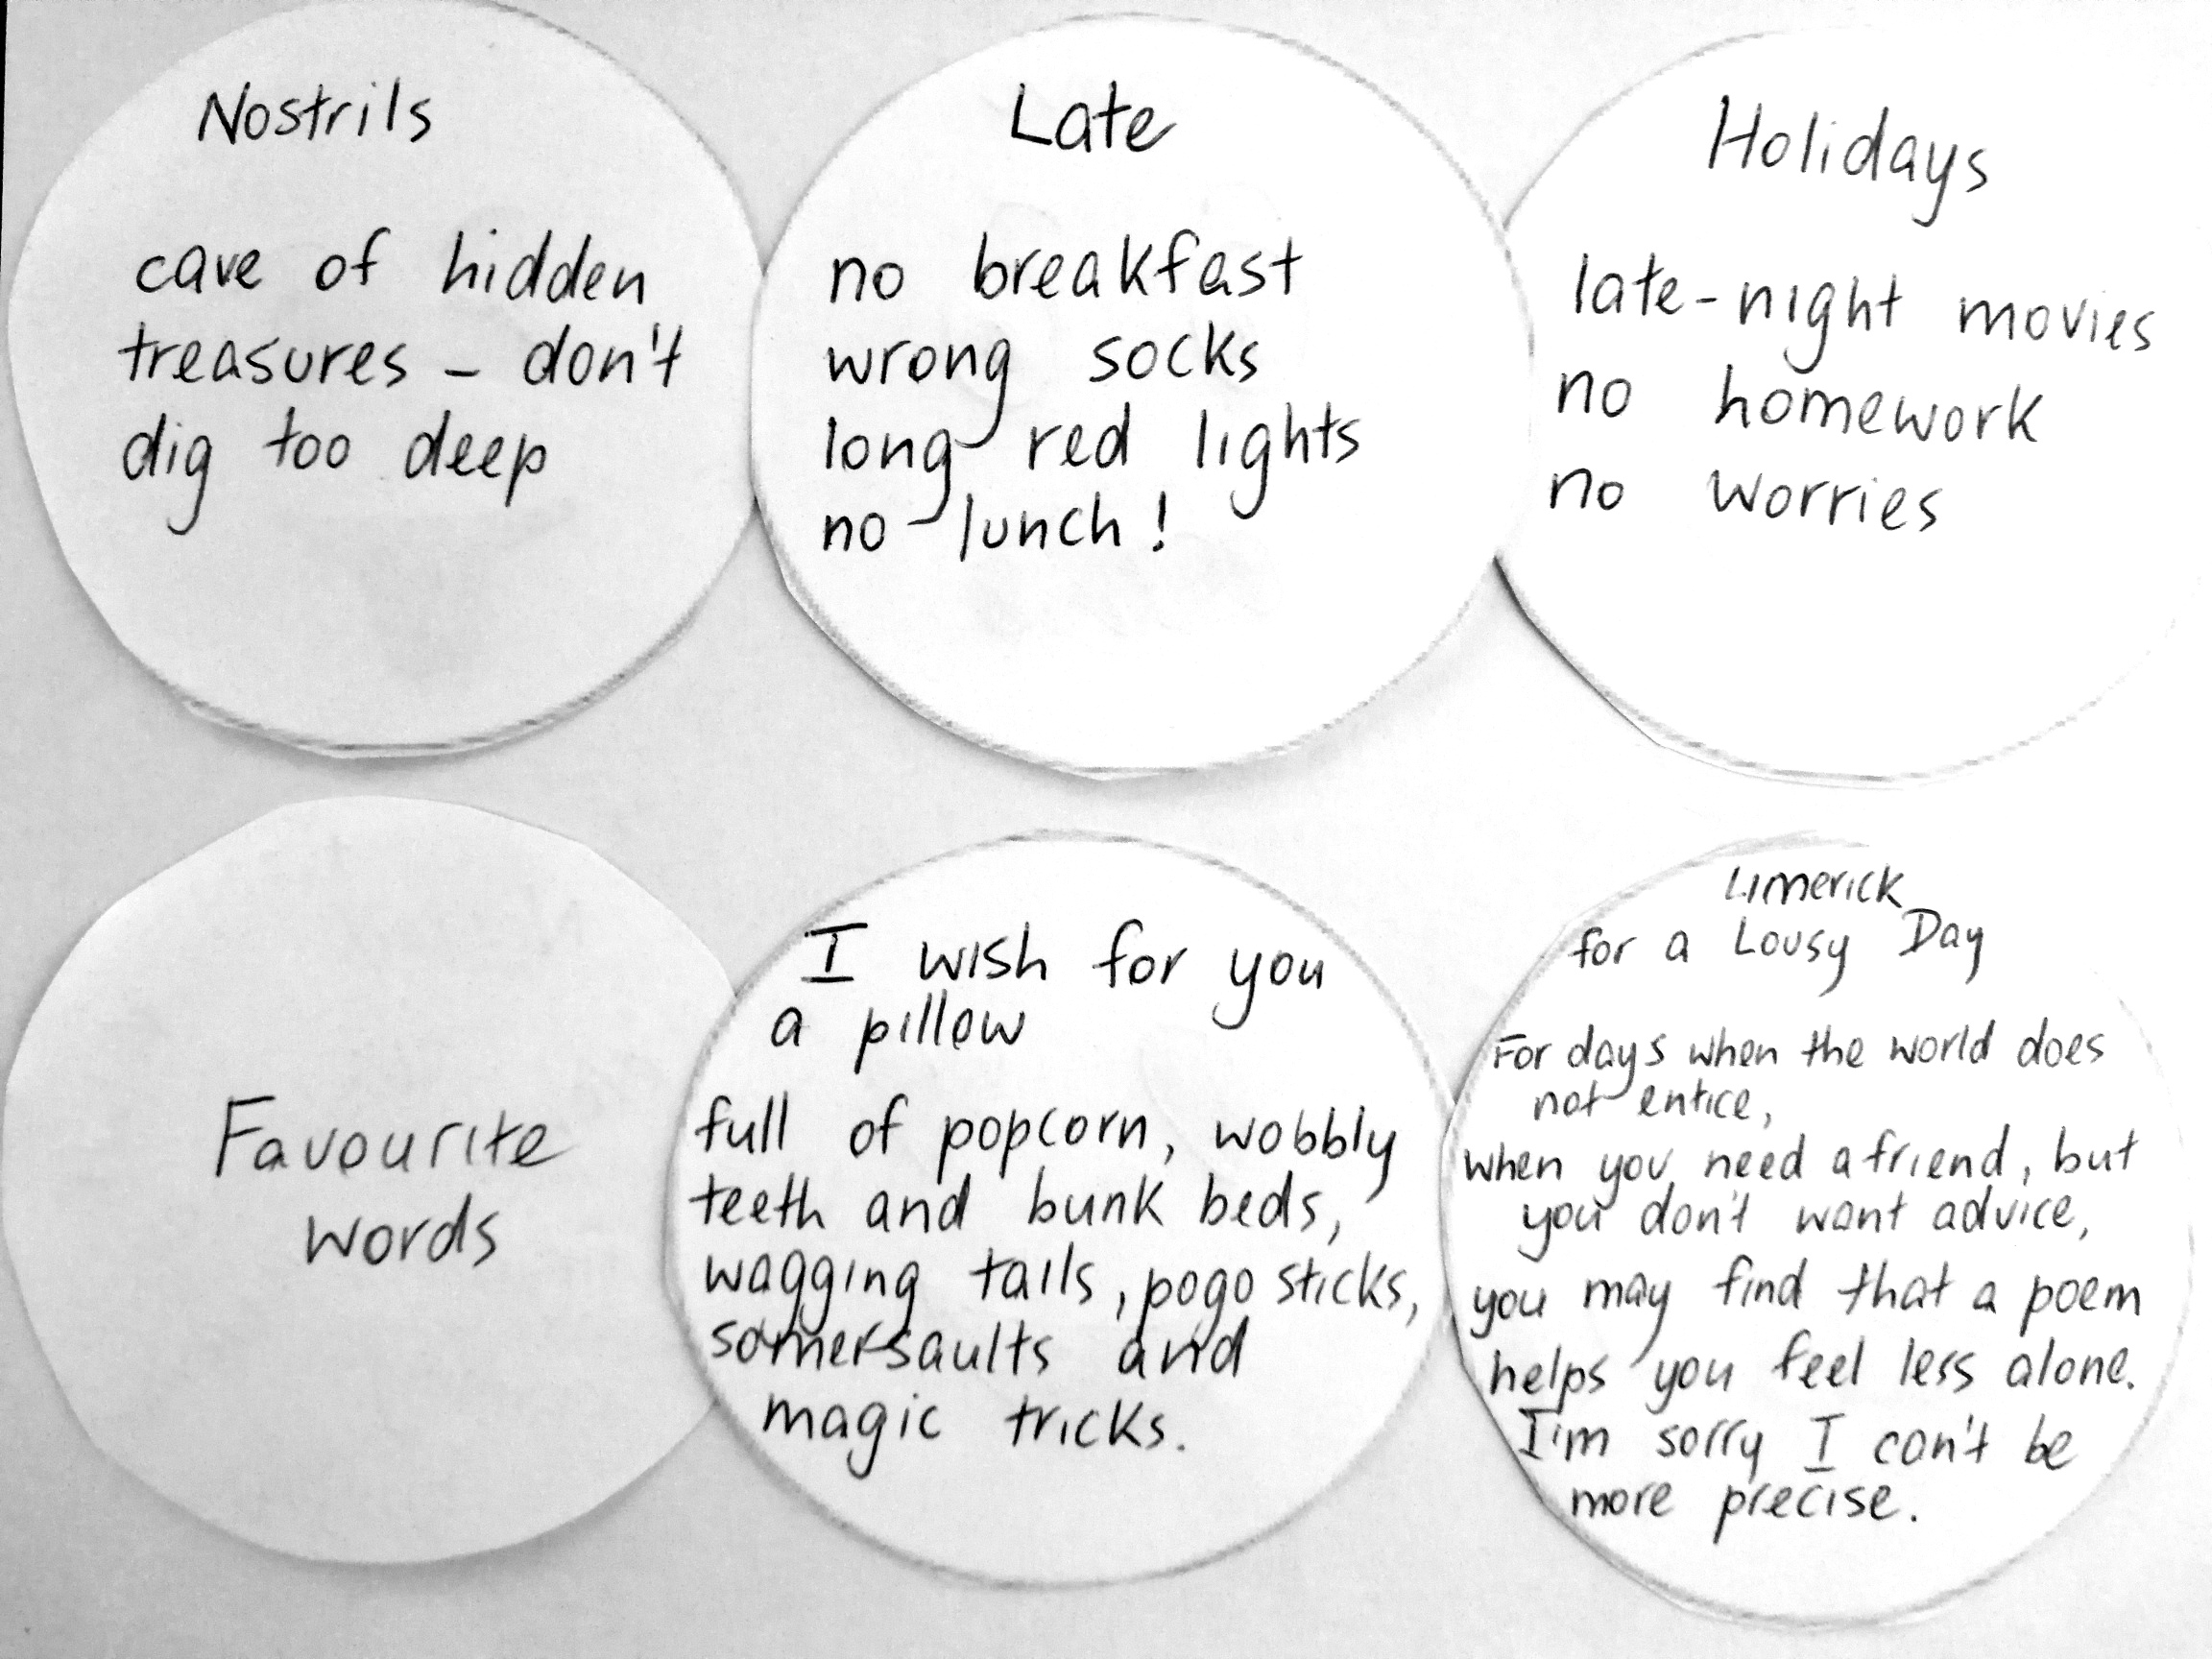 Nostrils
cave of hidden
treasures - don't
dig too deep
Late
no breakfast
wrong socks
long red lights
no lunch!
Holidays
late-night movies
no homework
no worries
Favourite
words
I wish for you
a pillow
full of popcorn, wobbly
teeth and bunk beds,
wagging tails, pogo sticks,
somersaults and
magic tricks.
Limerick
for a Lousy Day
For days when the world does
not entice,
when you need a friend, but
you don't want advice,
you may find that a poem
helps you feel less alone.
I'm sorry I can't be
more precise.